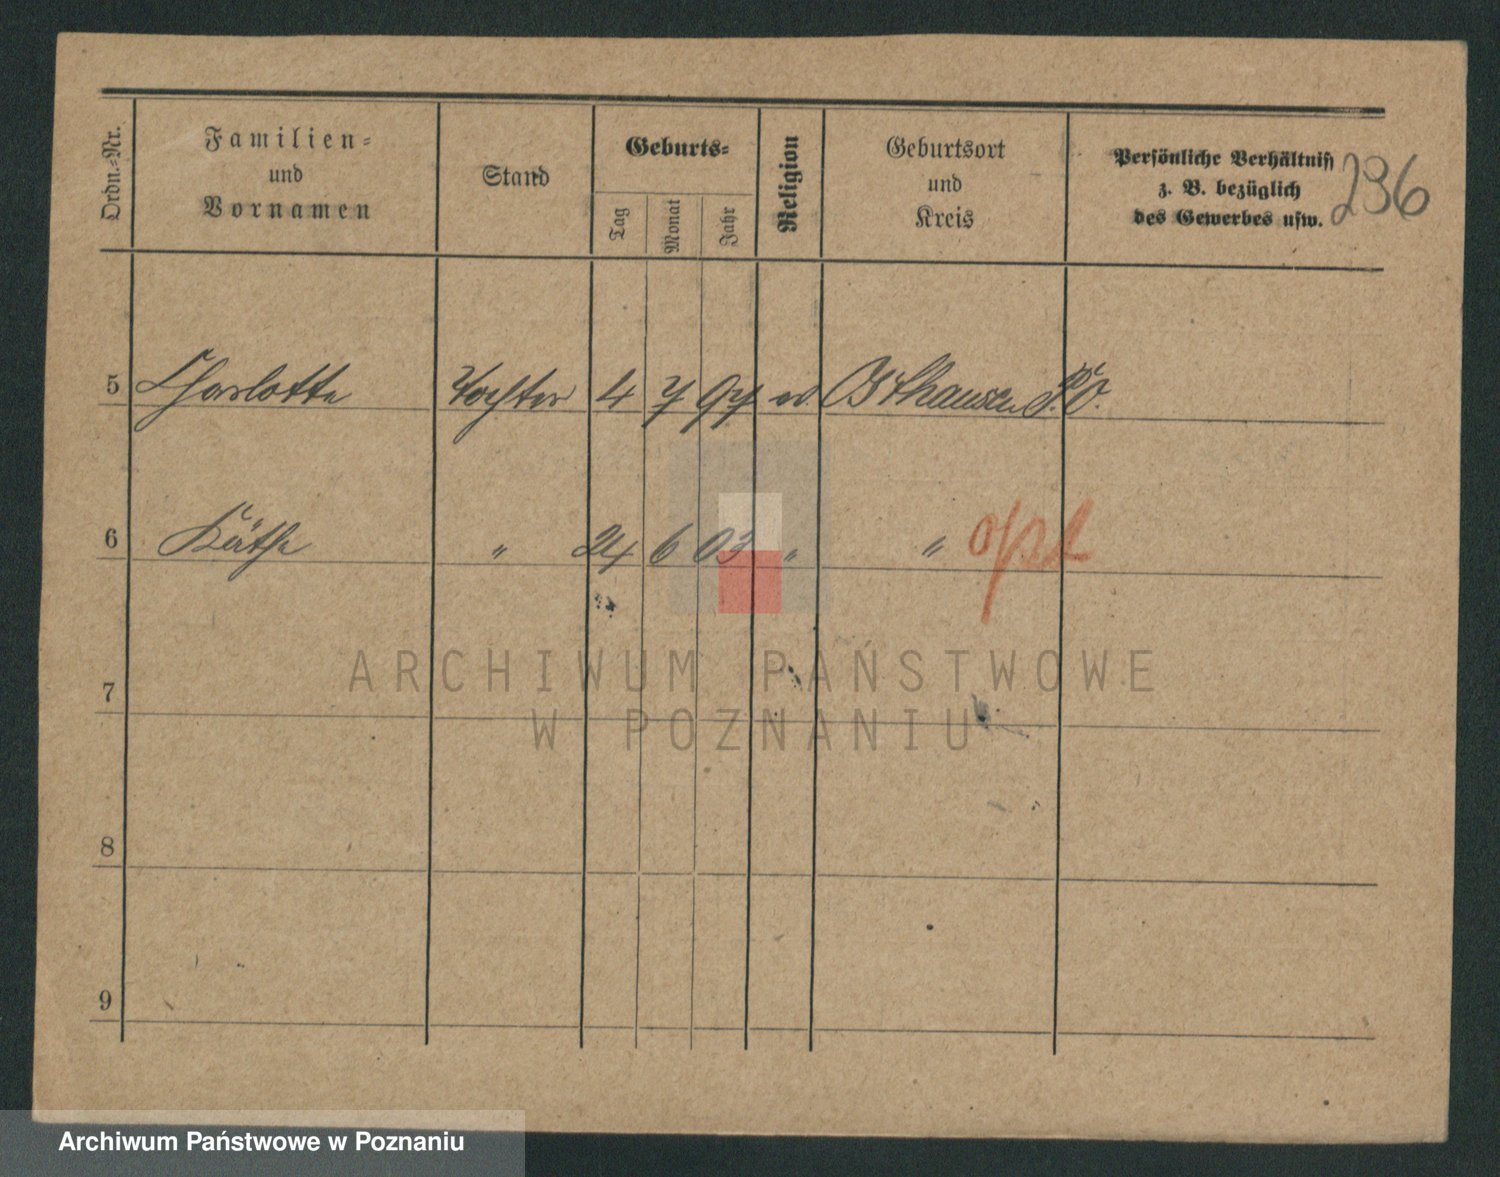 236
Ordn.-Nr.
Familien-
und
Vornamen
Stand
Geburts-
Tag
Monat
Jahr
Religion
Geburtsort
und
Kreis
Persönliche Verhältniss
z. B. bezüglich
des Gewerbes usw.
5 Charlotte Tochter 4 7 97 ev. Osthausen P. O.
6 Käthe " 24 6 03 " " opt
7
8
9
ARCHIWUM PAŃSTWOWE
W POZNANIU
Archiwum Państwowe w Poznaniu